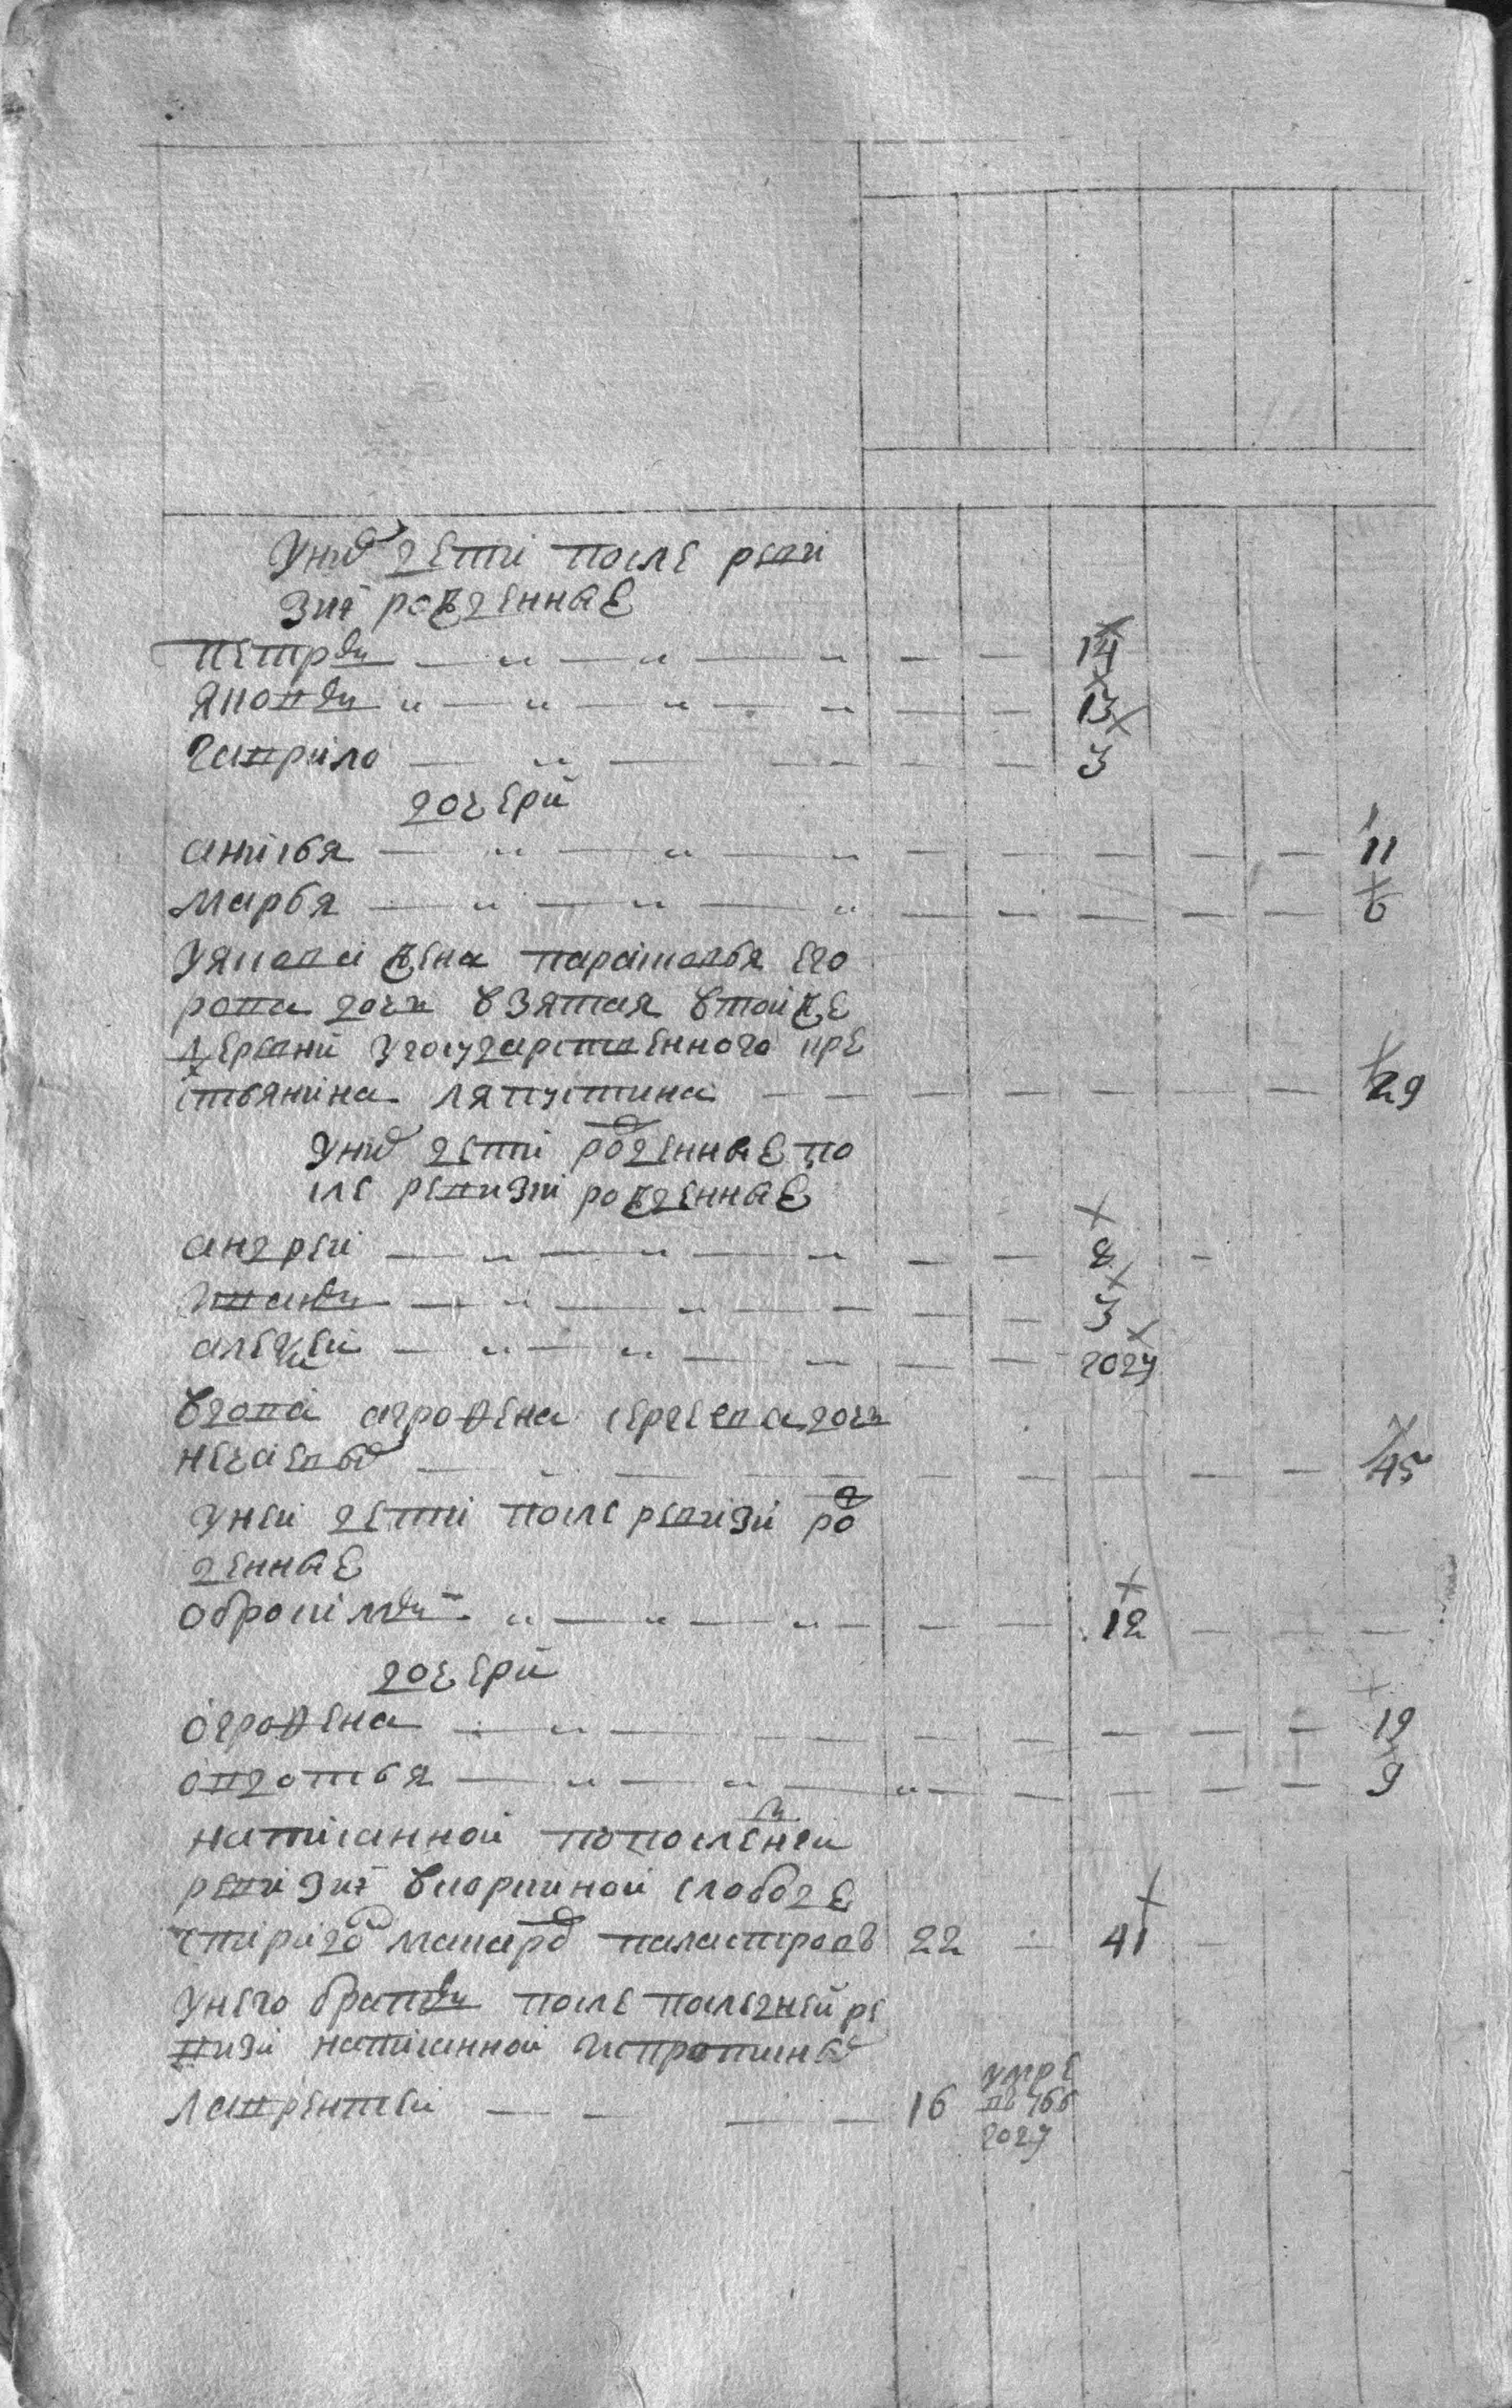 У них дети после реви
зии рожденные
Петръ 14
Яковъ 13
Гаврило 3
дочери
анисья 11
марья 6
У якова жена парасковья его
рова дочь взятая втойже
деревни угосударственного кре
стьянина ляпустина 29
У них дети роденные по
сле ревизии рожденные
андреи 8
Иванъ 3
алексеи году
вдова агрофена сергеева дочь
нечаевых 45
у неи дети после ревизии ро
денные
обросимъ 12
дочери
огрофена 19
овдотья 9
написанной попоследнеи
ревизии вкоркиной слободе
спиридо макаро паластровъ 22 41
у него братъ после последней ре
визи написанной Испротиных
лаврентеи 16 умре
въ 766
году